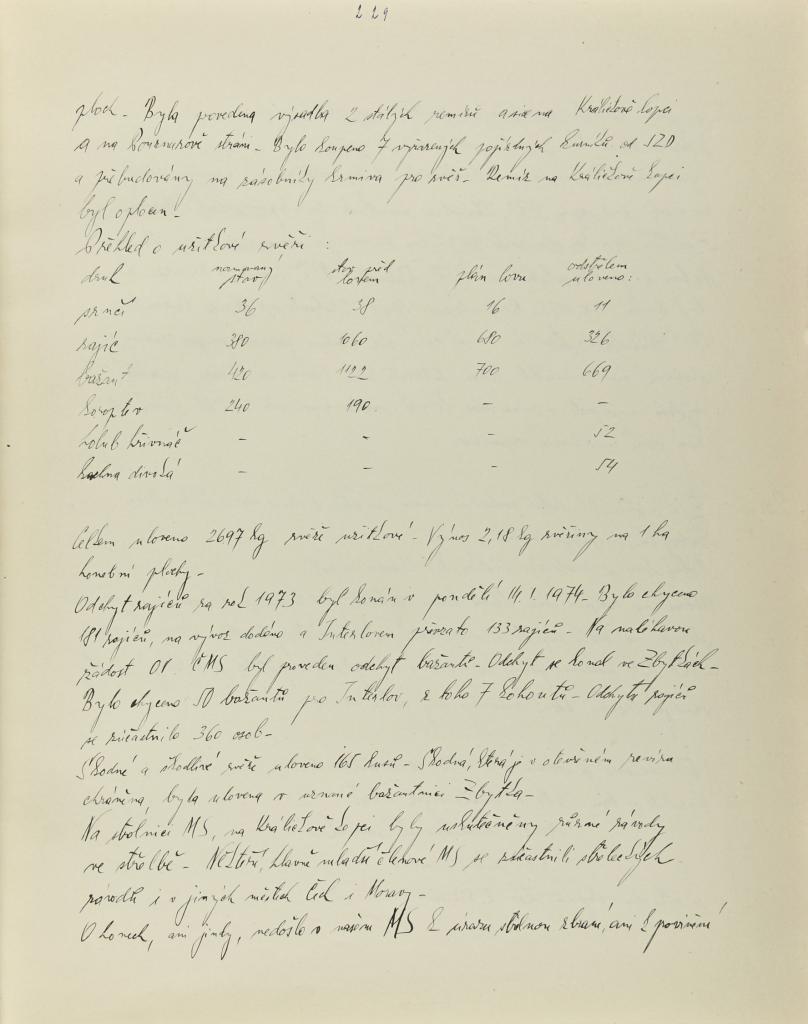 229
ploch. Byla provedena výsadba 2 stálých remízů a sice na Králíčkově kopci
a na Pournarově stráni. Bylo koupeno 7 vyřazených pojízdných kurníků od JZD
a přebudovány na zásobníky krmiva pro zvěř. Remíz na Králíčkově kopci
byl oplocen.
Přehled o užitkové zvěři :
druh normovaný stav stav před lovem plán lovu odstřelem uloveno:
srnčí 36 38 16 11
zajíc 380 1060 680 326
bažant 420 1122 700 669
koroptev 240 190 - -
holub hřivnáč - - - 52
kachna divoká - - - 54
Celkem uloveno 2697 kg zvěře užitkové. Výnos 2,18 kg zvěřiny na 1 ha
honební plochy.
Odchyt zajíců za rok 1973 byl konán v pondělí 14.1.1974. Bylo chyceno
181 zajíců, na vývoz dodáno a Interlovem převzato 133 zajíců. Na naléhavou
žádost OV ČMS byl proveden odchyt bažantů. Odchyt se konal ve Zbytkách.
Bylo chyceno 50 bažantů pro Interlov, z toho 7 kohoutů. Odchytu zajíců
se zúčastnilo 360 osob.
Škodné a škodlivé zvěře uloveno 165 kusů. Škodná, která je v otevřeném revíru
chráněna, byla ulovena v uznané bažantnici Zbytka.
Na střelnici MS, na Králíčkově kopci byly uskutečněny různé závody
ve střelbě. Někteří, hlavně mladší členové MS se zúčastnili střeleckých
závodů i v jiných městech Čech i Moravy.
O honech, ani jindy, nedošlo v našem MS k úrazu střelnou zbraní, ani k poranění